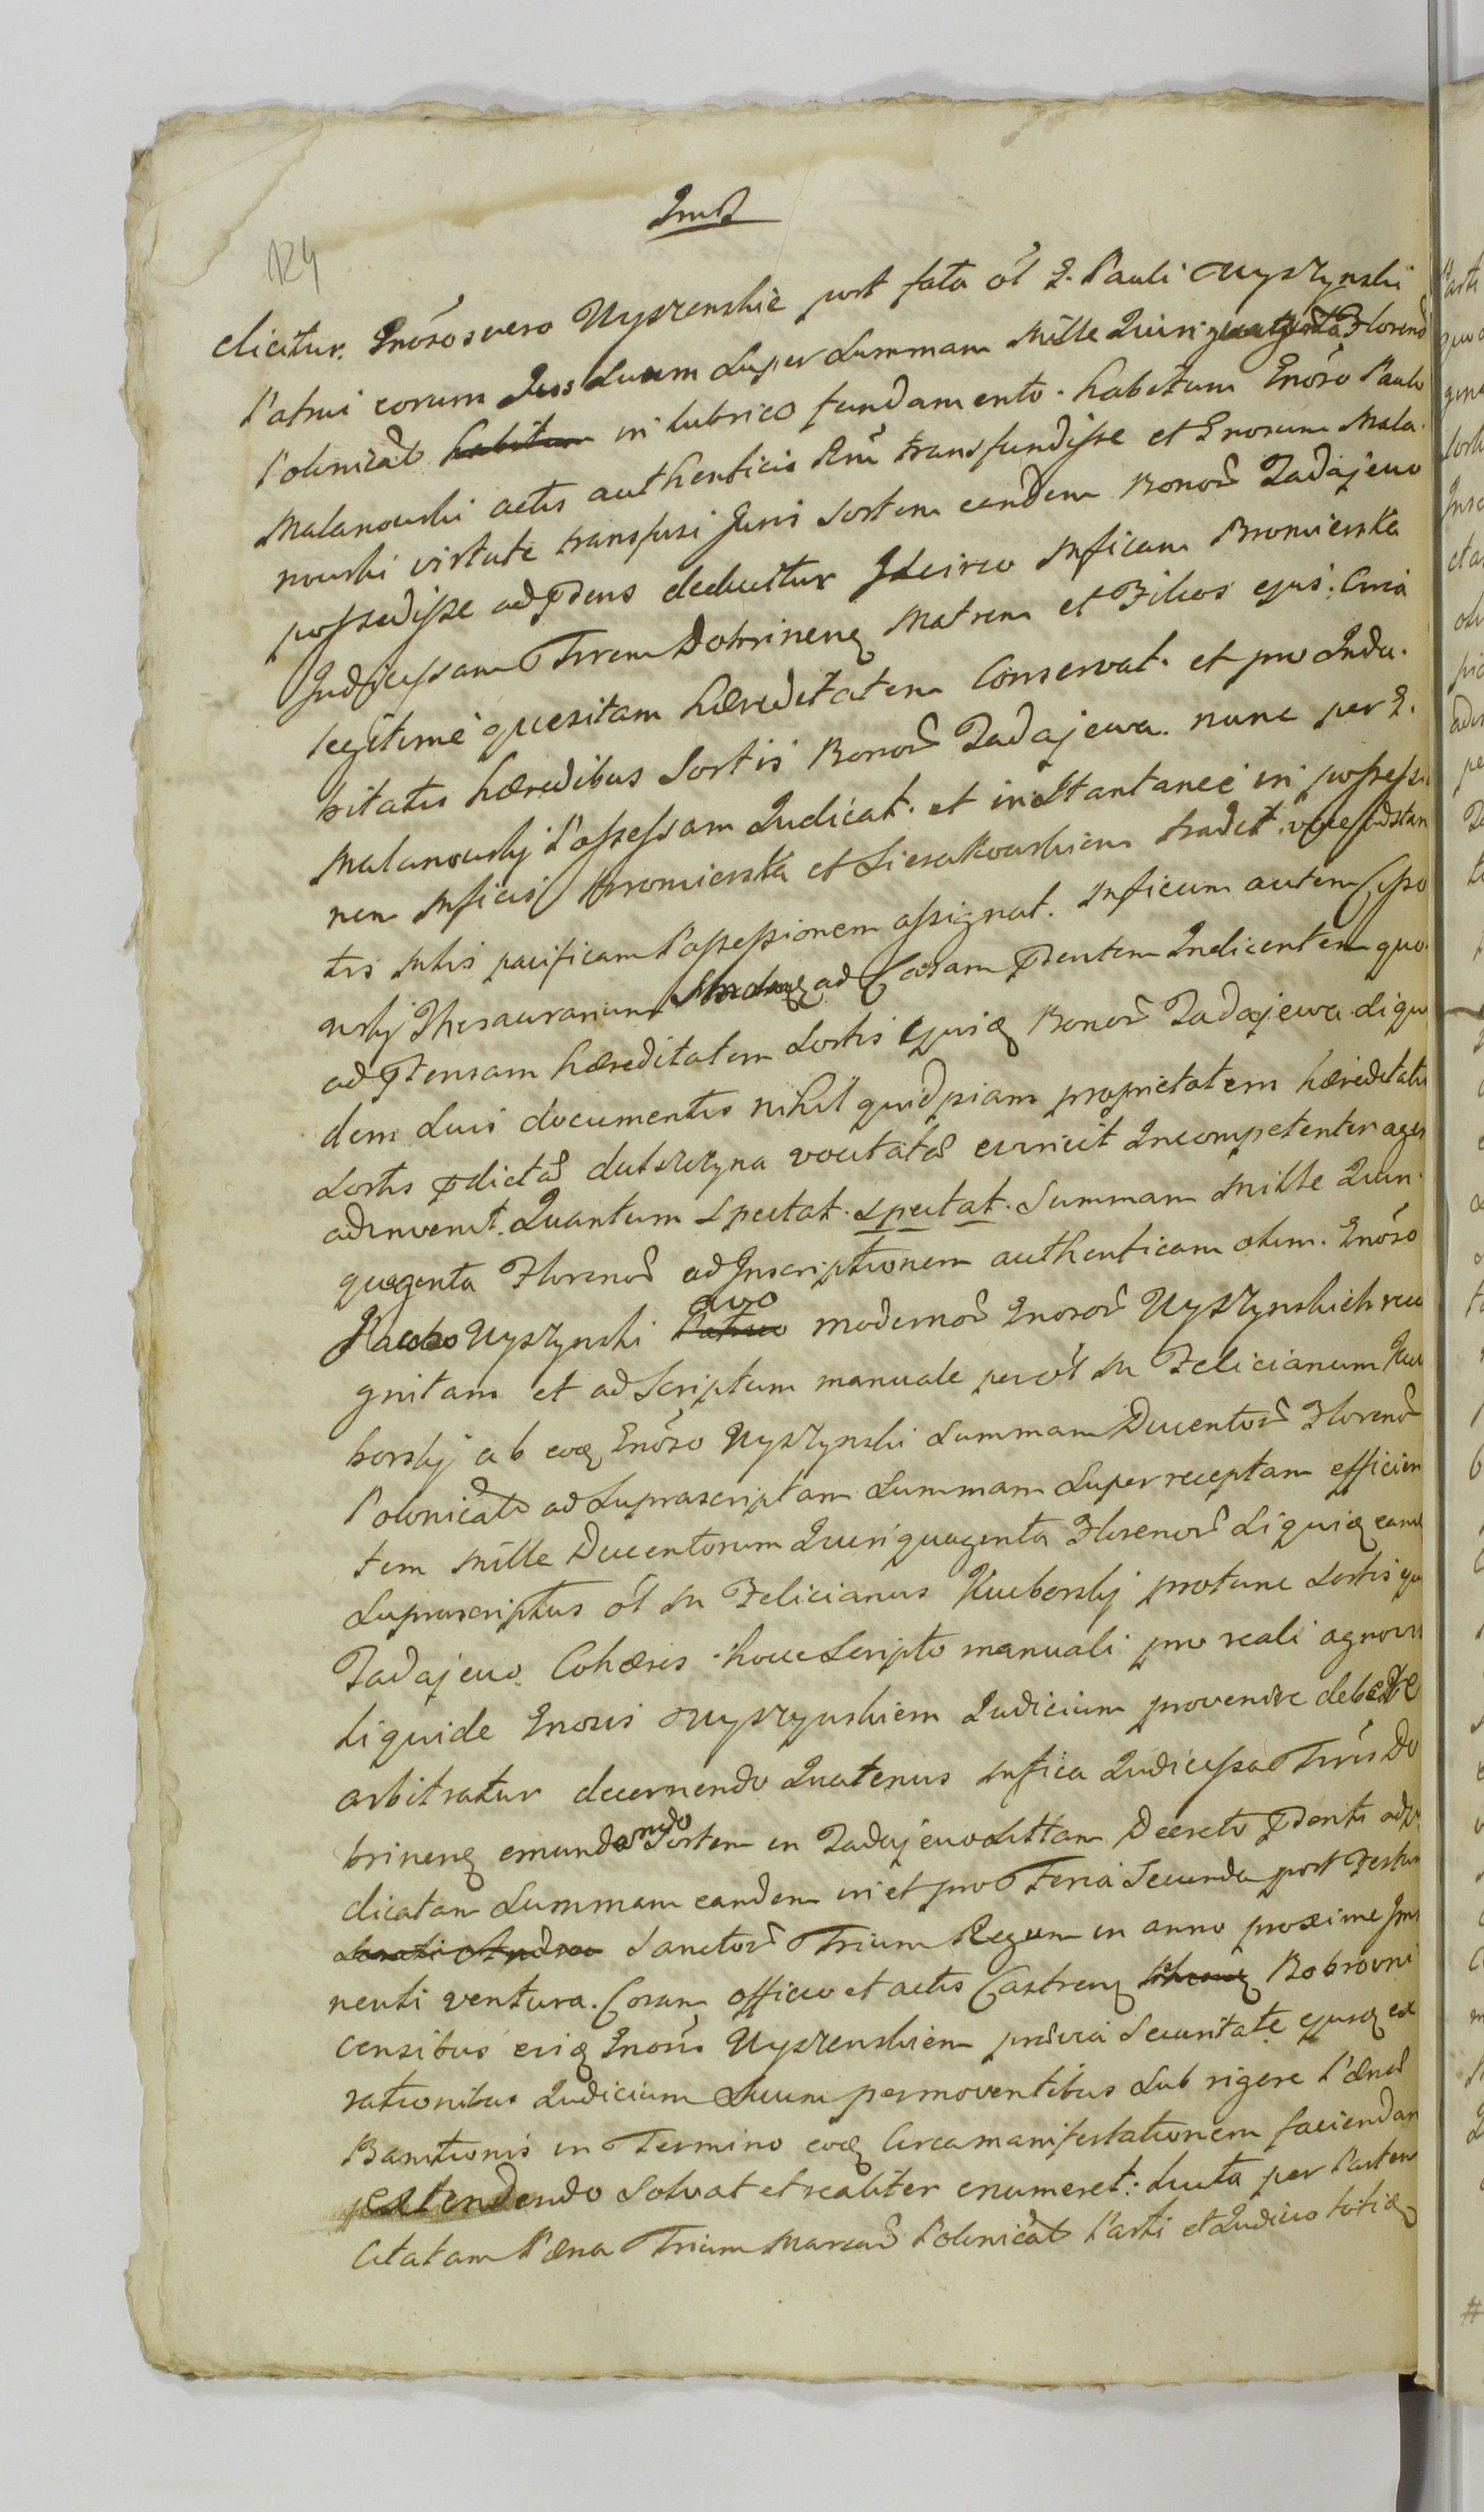 124
dicitur. Gnosos vero Wyszenskie post fata ol G. Pauli Wyszynski
Patrui eorum Jus Suum Super Summam Mille Quinquaginta Florenor
Polonical habitum in lubrico fundamento habitum Gnoso Paulo
Malanowski actis authenticis transfundisse et Gnosum Mala-
nowski virtute transfusi Juris Sortem eandem Bonor Zadajewo
possedisse ad pdens deducitur Idcirco Mficam Bromierska
Judicissam Terrem Dobrinen Matrem et Filios ejus Circa
legitimé quesitam hæreditatem Conservat. et pro Indu-
bitatis hæredibus Sortis Bonor Zadajewa nunc per G.
Malanowskj Possessam Judicat. et in Stantanee in possessio
nem Mficis Bromierska et Sierakowskiem tradit
tis pacificam Possessionem assignat. Mficum autem Cisso
wskj Thesaurarium ad Causam pdentem Indicentem quo
ad ptensam hæreditatem Sortis Bonor Zadajewa siqui
dem Suis documentis nihil quidpiam proprietatem hæreditatis
Sortis pdictæ vocitatæ evincit Incompetenter agere
adinvenit. Quantum Spectat. spectat. Summam Mille Quin-
quagenta Florenor ad Inscriptionem authenticam olim. Gnoso
Paulo Wyszynski Patruo avo modernor Gnosor Wyszynskich reco
gnitam et ad Scriptum manuale per ol M Felicianum Kuc
borskj ab eoq Gnoso Wyszynski Summam Ducentor Florenor
Polonicál ad Suprascriptam Summam Superreceptam efficien
tem Mille Ducentorum Quinquagenta Florenor Siquiq eam
Suprascriptus ol M Felicianus Kucborskj protunc Sortis
Zadajewo Cohæres hocce Scripto manuali pro reali agnovit
liquide Gnosis Wyszynskiem Judicium provenire debere
arbitratur decernendo Quatenus Mfica Judicissa Tcris Do
brinen emundando Sortem in Zadajewo Sittam Decreto pdenti adju
dicatam Summam eandem in et pro Feria Secunda post Festum
Sancti Andreæ Sanctor Trium Regum in anno proxime Imi
nenti ventura. Coram officio et actis Castren Bobrovni
censibus eisq Gnosis Wyszenskiem prævia Securitate ejusq ex
rationibus Judicium Suum permoventibus Sub rigore Pænæ
Banitionis in Termino eoq Circa manifestationem faciendam
extendendo Solvat et realiter enumeret: Lucta per Partem
Citatam Pæna Trium Marcar Polonicál Parti et Judicio totiq